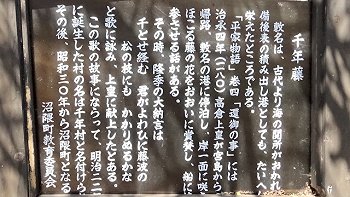 千年藤
敷名は、古代より海の関所がおかれ
備後表の積み出し港としても、たいへん
栄えたところである。
「平家物語」巻四「還御の事」には
治承四年(一一八〇)高倉上皇が宮島から
帰路、敷名の港に停泊し、岸一面に咲き
ほこる藤の花をおおいに賞賛し、船に
参らせる話がある。
その時、隆季の大納言は
千とせ経む 君がよわひに藤波の
松の枝にも かかりぬるかな
と歌に詠み、上皇に献上したとある。
この歌の故事にならって、明治二二
に誕生した村の名は千年村と名付けら
その後、昭和三〇年から沼隈町となる
沼隈町教育委員会